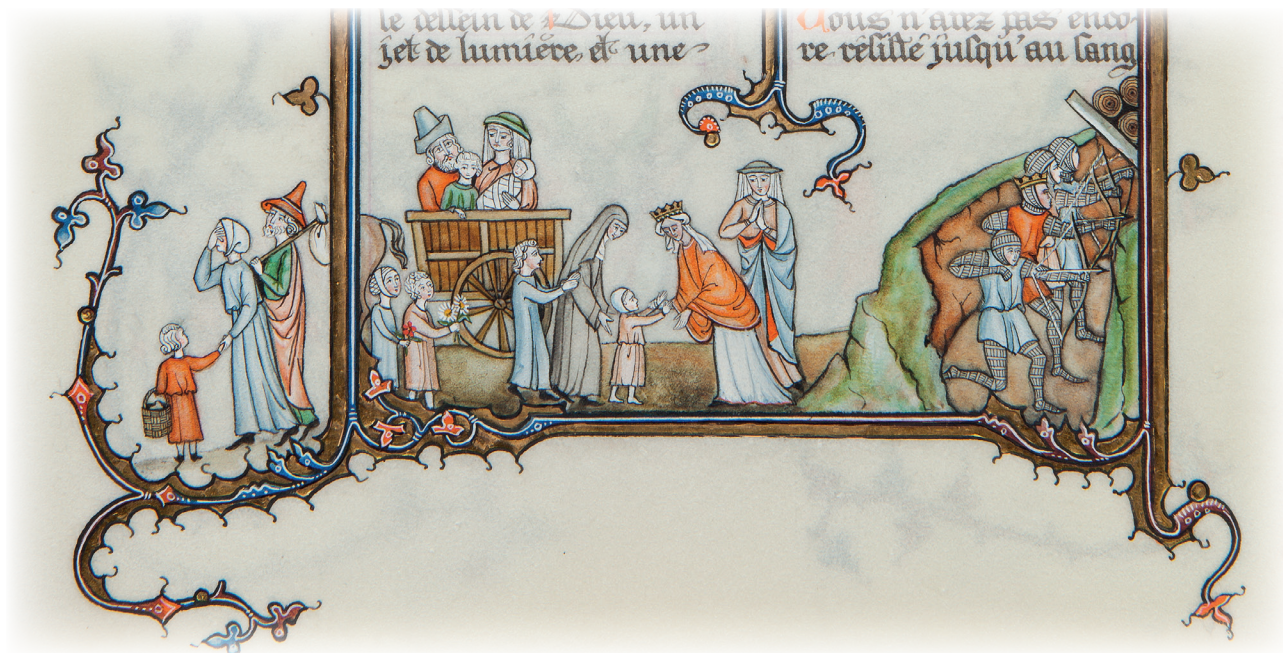 le dessein de Dieu, un
jet de lumière, et une
Vous n'avez pas enco-
re résisté jusqu'au sang